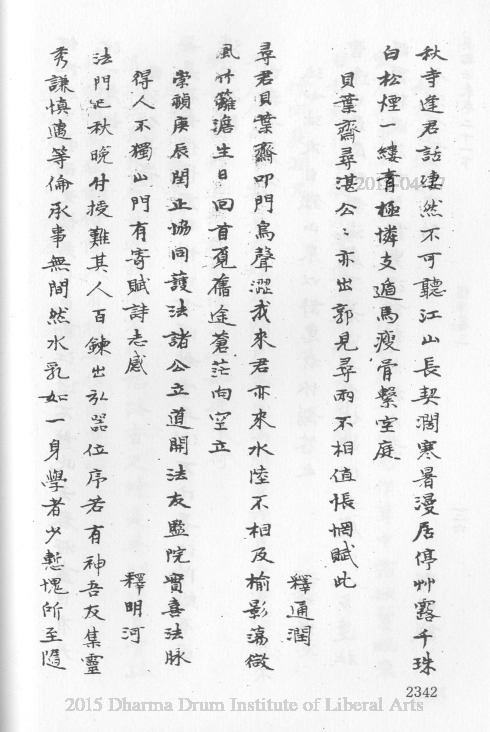 秋寺逢君話淒然不可聽江山長契濶寒暑漫居停艸露千珠
白松煙一縷青極憐支遁馬瘦骨繫空庭
貝葉齋尋湛公公亦出郭見尋兩不相值悵惘賦此
釋通潤
尋君貝葉齋叩門鳥聲澀我來君亦來水陸不相及榆影蕩微
風竹籬澹生日回首覓舊途蒼茫向空立
崇禎庚辰閏正協同護法諸公立道開法友監院實喜法脉
得人不獨山門有寄賦詩志感
釋明河
法門屺秋晚付授難其人百鍊出弘器位序若有神吾友集靈
秀謙慎邁等倫承事無間然水乳如一身學者少慙愧所至隨
2342
2015 Dharma Drum Institute of Liberal Arts